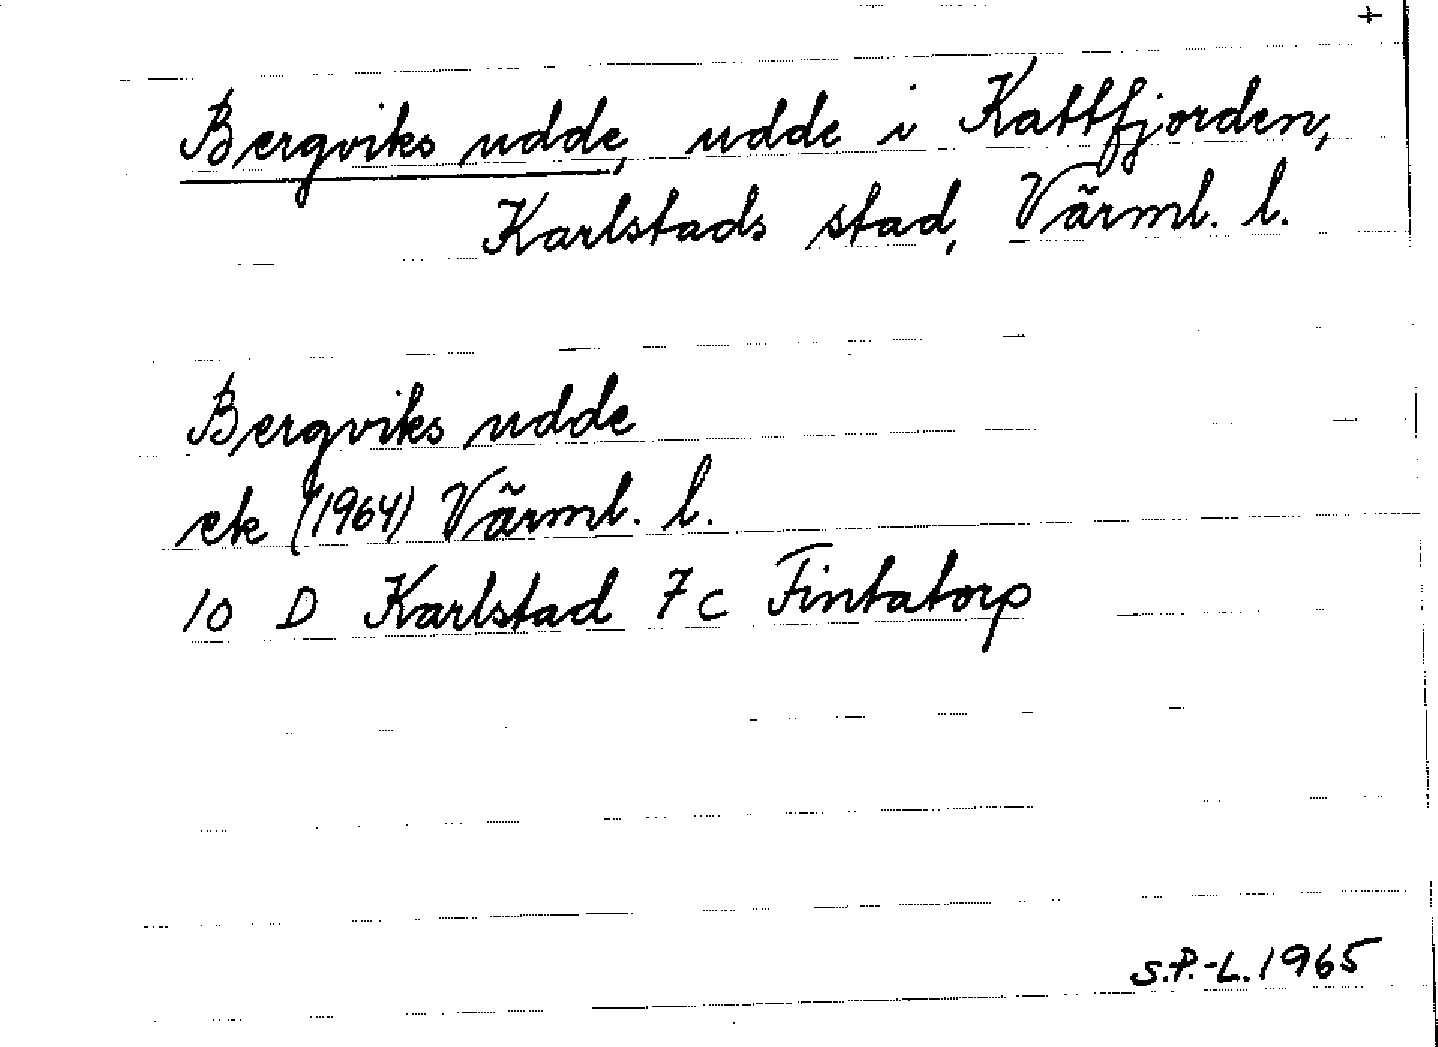 +
Bergviks udde, udde i Kattfjorden,
Karlstads stad, Värml. l.
Bergviks udde
ek (1964) Värml. l.
10 D Karlstad 7c Fintatorp
S.P.-L. 1965